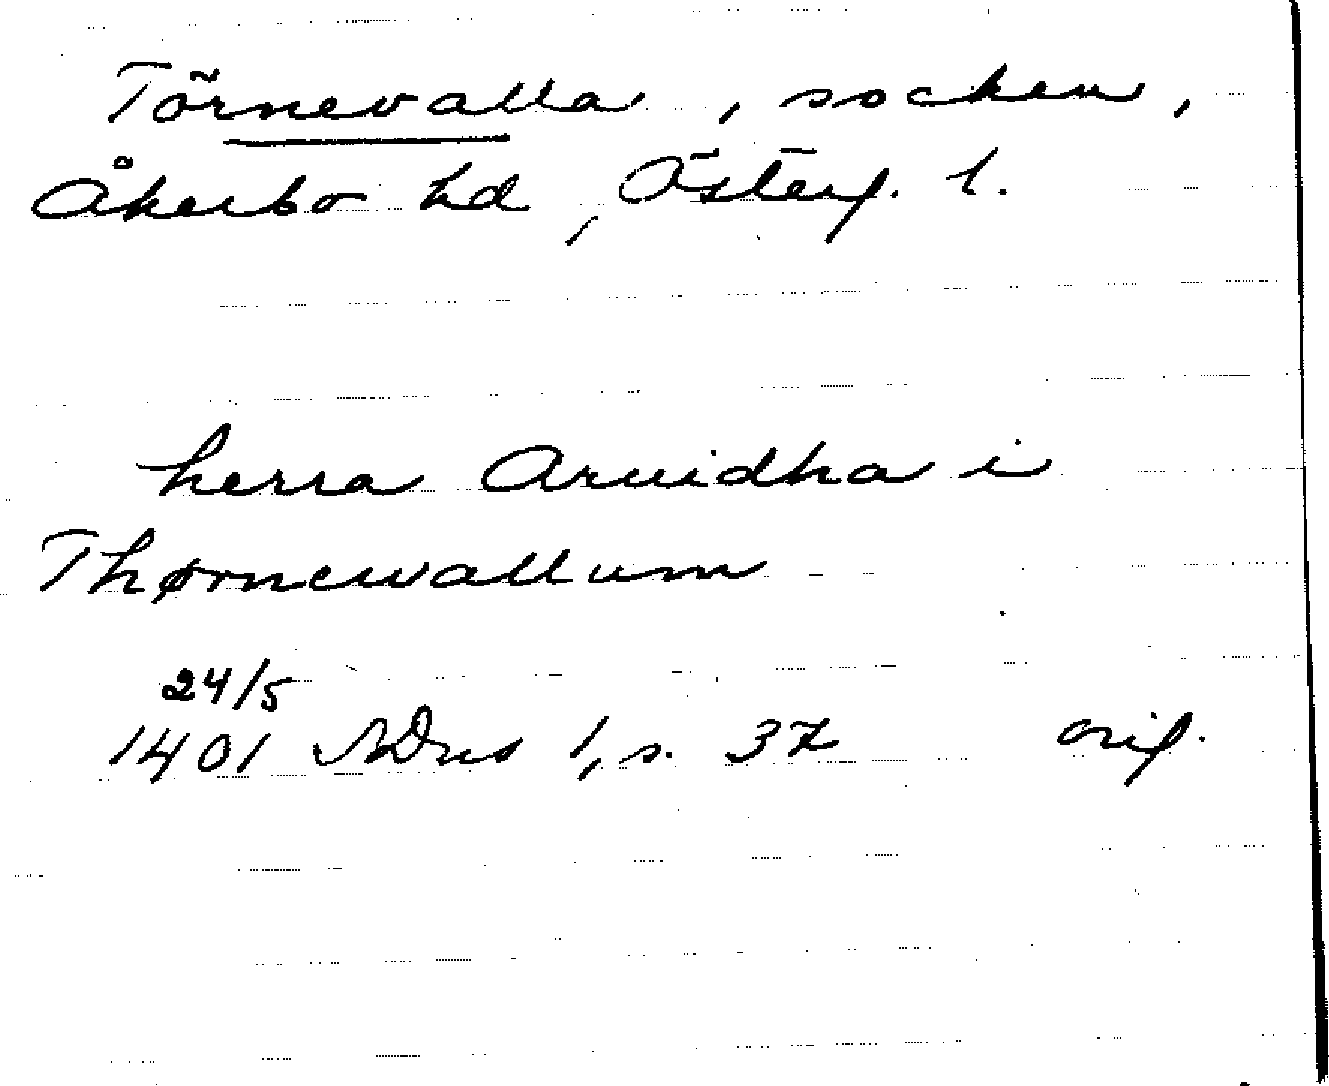 Törnevalla, socken,
Åkerbo hd, Österg. l.
herra Aruidha i
Thørnewallum
24/5
1401 SDns 1, s. 37 orig.